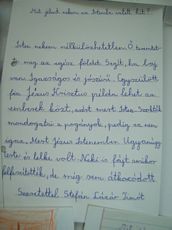 Mit jelent nekem az Istenbe vetett hit?
Isten nekem nélkülözhetetlen. Ő teremtet-
te meg az egész földet. Segít, ha baj
van. Igazságos és jószívű. Egyszülött
fia Jézus Krisztus példm lehet az
emberek közt, azért mert Isten
mondogatni a pogányok, pedig az nem
igaz. Mert Jézus Istenember. Ugyanúgy
teste és lelke volt. Neki is fájt amikor
felfeszítették, de még sem átkozódott.
Szeretettel: Stefán Lázár Timót